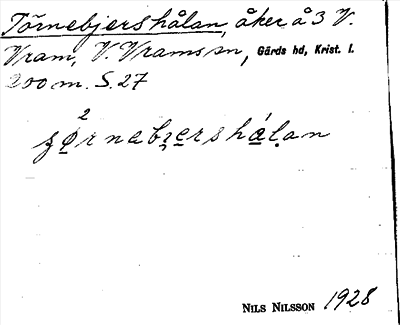 Törnebjershålan, åker å 3 V.
Vram, V. Vrams sn, Gärds hd, Krist. l.
200 m. S. 27
2
Nils Nilsson 1928